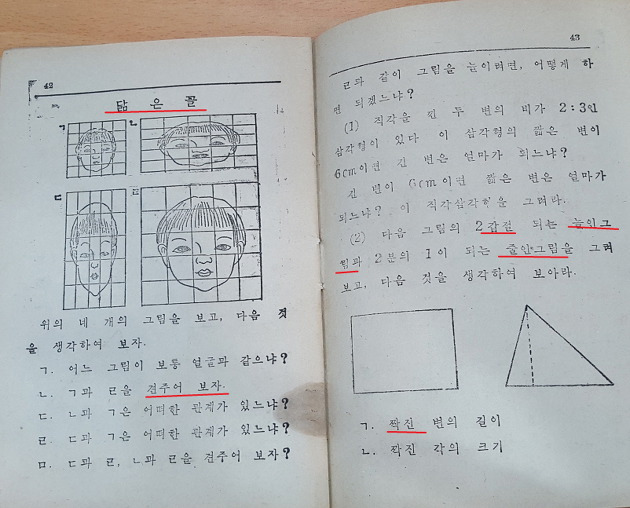 42
닮은꼴
ㄱ
ㄴ
ㄷ
ㄹ
위의 네 개의 그림을 보고, 다음 것
을 생각하여 보자.
ㄱ. 어느 그림이 보통 얼굴과 같으냐?
ㄴ. ㄱ과 ㄹ을 견주어 보자.
ㄷ. ㄴ과 ㄱ은 어떠한 관계가 있느냐?
ㄹ. ㄷ과 ㄱ은 어떠한 관계가 있느냐?
ㅁ. ㄷ과 ㄹ, ㄴ과 ㄹ을 견주어 보자?
43
ㄹ과 같이 그림을 늘이려면, 어떻게 하
면 되겠느냐?
(1) 직각을 낀 두 변의 비가 2:3인
삼각형이 있다 이 삼각형의 짧은 변이
6cm이면 긴 변은 얼마가 되느냐?
긴 변이 6cm이면 짧은 변은 얼마가
되느냐? 이 직각삼각형을 그려라.
(2) 다음 그림의 2갑절 되는 늘인그
림과 2분의 1이 되는 줄인그림을 그려
보고, 다음 것을 생각하여 보아라.
ㄱ. 짝진 변의 길이
ㄴ. 짝진 각의 크기